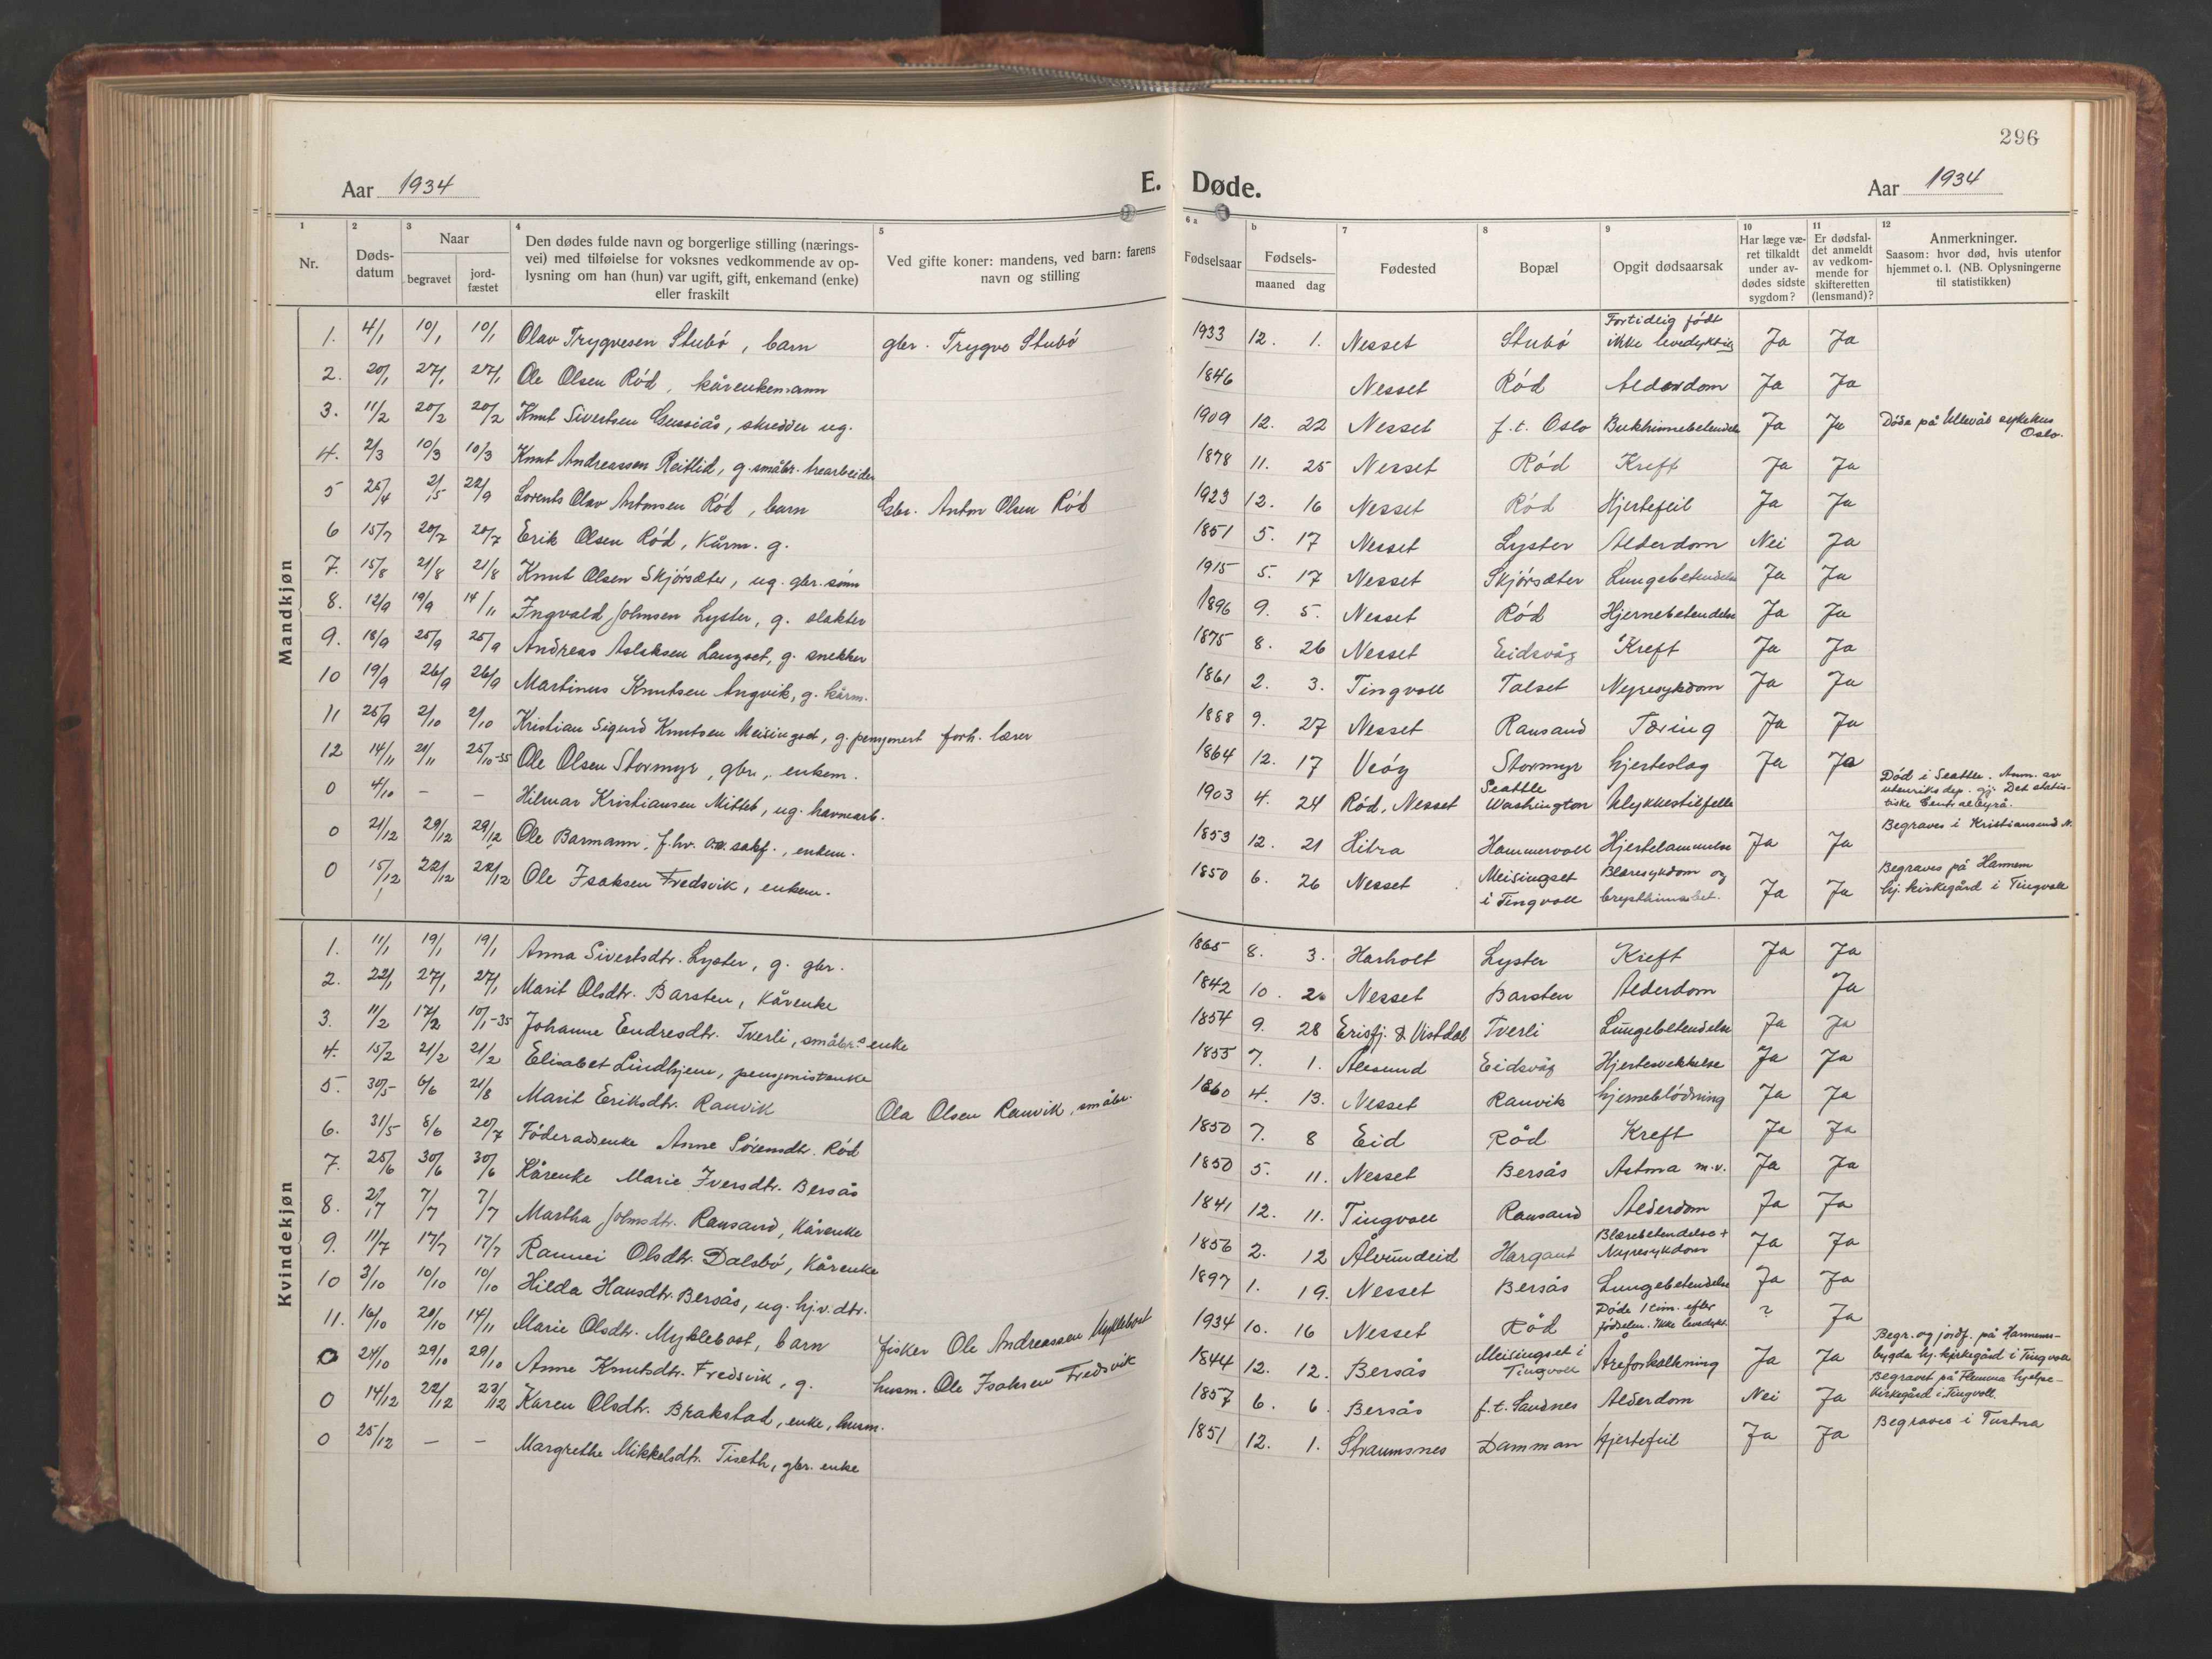 296
Aar 1934
E. Døde.
Aar 1934
1 Nr.
2 Døds-datum
3 Naar begravet jord-fæstet
4 Den dødes fulde navn og borgerlige stilling (nærings-vei) med tilføielse for voksnes vedkommende av op-lysning om han (hun) var ugift, gift, enkemand (enke) eller fraskilt
5 Ved gifte koner: mandens, ved barn: farens navn og stilling
6 a Fødselsaar
b Fødsels- maaned dag
7 Fødested
8 Bopæl
9 Opgit dødsaarsak
10 Har læge væ-ret tilkaldt under av-dødes sidste sygdom?
11 Er dødsfal-det anmeldt av vedkom-mende for skifteretten (lensmand)?
12 Anmerkninger. Saasom: hvor død, hvis utenfor hjemmet o. l. (NB. Oplysningerne til statistikken)
Mandkjøn
1. 4/1 10/1 10/1 Olav Trygvesen Stubø, barn gbr. Trygve Stubø 1933 12. 1. Nesset Stubø Fortidlig født ikke levedyktig Ja Ja
2. 20/1 27/1 27/1 Ole Olsen Rød, kårenkemann 1846 Nesset Rød Alderdom Ja Ja
3. 11/2 20/2 20/2 Knut Sivertsen Gussiås, skredder ug. 1909 12. 22 Nesset f.t. Oslo Bukhinnebetendelse Ja Ja Døde på Ullevål sykehus Oslo.
4. 2/3 10/3 10/3 Knut Andreassen Reitlid, g. småbr. trearbeider 1878 11. 25 Nesset Rød Kreft Ja Ja
5 25/4 2/5 22/9 Lorents Olav Antonsen Rød, barn Gbr. Anton Olsen Rød 1923 12. 16 Nesset Rød Hjertefeil Ja Ja
6 15/7 20/7 20/7 Erik Olsen Rød, Kårm. g. 1851 5. 17 Nesset Lyster Alderdom Nei Ja
7. 15/8 21/8 21/8 Knut Olsen Skjørsæter, ug. gbr. sønn 1915 5. 17 Nesset Skjørsæter Lungebetendelse Ja Ja
8. 12/9 19/9 14/11 Ingvald Johnsen Lyster, g. slakter 1896 9. 5. Nesset Rød Hjernebetendelse Ja Ja
9. 18/9 25/9 25/9 Andreas Aslaksen Langset, g. snekker 1875 8. 26 Nesset Eidsvåg Kreft Ja Ja
10 19/9 26/9 26/9 Martinus Knutsen Angvik, g. kårm. 1861 2. 3. Tingvoll Talset Nyresykdom Ja Ja
11 25/9 2/10 2/10 Kristian Sigurd Knutsen Meisingset, g. pensjonert forh. lærer 1888 9. 27 Nesset Ransand Tæring Ja Ja
12 14/11 21/11 25/10-35 Ole Olsen Stormyr, gbr., enkem. 1864 12. 17 Veøy Stormyr hjerteslag Ja Ja
0 4/10 – – Hilmar Kristiansen Mittet, ug. havnearb. 1903 4. 24 Rød, Nesset Seattle Washington Ulykkestilfelle Død i Seattle. Anm. av utenriksdep. gj. Det statis-tiske Centralbyrå.
0 21/12 29/12 29/12 Ole Barmann, f.hv. o.r.sakf., enkem. 1853 12. 21 Hitra Hammervoll Hjertelammelse Ja Ja Begraves i Kristiansund N.
0 15/12 22/12 22/12 Ole Isaksen Fredsvik, enkem. 1850 6. 26 Nesset Meisingset i Tingvoll Blæresykdom og brysthinnebet. Ja Ja Begraves på Hannem hj. kirkegård i Tingvoll
Kvindekjøn
1. 11/1 19/1 19/1 Anna Sivertsdtr. Lyster, g. gbr. 1865 8. 3. Harholt Lyster Kreft Ja Ja
2. 22/1 27/1 27/1 Marit Olsdtr. Barsten, Kårenke 1842 10. 2. Nesset Barsten Alderdom Ja
3. 11/2 17/2 10/1-35 Johanne Endresdtr. Tverli, småbr.s enke 1854 9. 28 Erisfj. & Vistdal Tverli Lungebetendelse Ja Ja
4. 15/2 21/2 21/2 Elisabet Lindhjem, pensjonistenke 1855 7. 1. Ålesund Eidsvåg Hjertesvekkelse Ja Ja
5. 30/5 6/6 21/8 Marit Eriksdtr. Ranvik Ola Olsen Ranvik, småbr. 1860 4. 13. Nesset Ranvik hjerneblødning Ja Ja
6. 31/5 8/6 20/7 Føderadsenke Anne Sørensdtr. Rød 1850 7. 8 Eid Rød Kreft Ja Ja
7. 25/6 30/6 30/6 Kårenke Marie Iversdtr. Bersås 1850 5. 11. Nesset Bersås Astma m.v. Ja Ja
8. 2/7 7/7 7/7 Martha Johnsdtr. Ransand, Kårenke 1841 12. 11. Tingvoll Ransand Alderdom Ja Ja
9. 11/7 17/7 17/7 Rannei Olsdtr. Dalsbø, Kårenke 1856 2. 12 Ålvundeid Hargaut Blærebetendelse + Nyresykdom Ja Ja
10 3/10 10/10 10/10 Hilda Hansdtr. Bersås, ug. hj.v. dtr. 1897 1. 19. Nesset Bersås Lungebetendelse Ja Ja
11. 16/10 20/10 14/11 Marie Olsdtr. Myklebost, barn fisker Ole Andreassen Myklebost 1934 10. 16 Nesset Rød Døde 1 tim. efter fødselen. Ikke levedykt. ? Ja
0 24/10 29/10 29/10 Anne Knutsdtr. Fredsvik, g. husm. Ole Isaksen Fredsvik 1844 12. 12. Bersås Meisingset i Tingvoll Åreforkalkning Ja Ja Begr. og jordf. på Hannems-bygda hj. kirkegård i Tingvoll
0 14/12 22/12 23/12 Karen Olsdtr. Brakstad, enke, husm. 1857 6. 6. Bersås f.t. Sandnes Alderdom Nei Ja Begravet på Flemma hjelpe-kirkegård i Tingvoll.
0 25/12 – – Margrethe Mikkelsdtr. Tiseth, gbr. enke 1851 12. 1. Straumsnes Damman Hjertefeil Ja Ja Begraves i Tustna